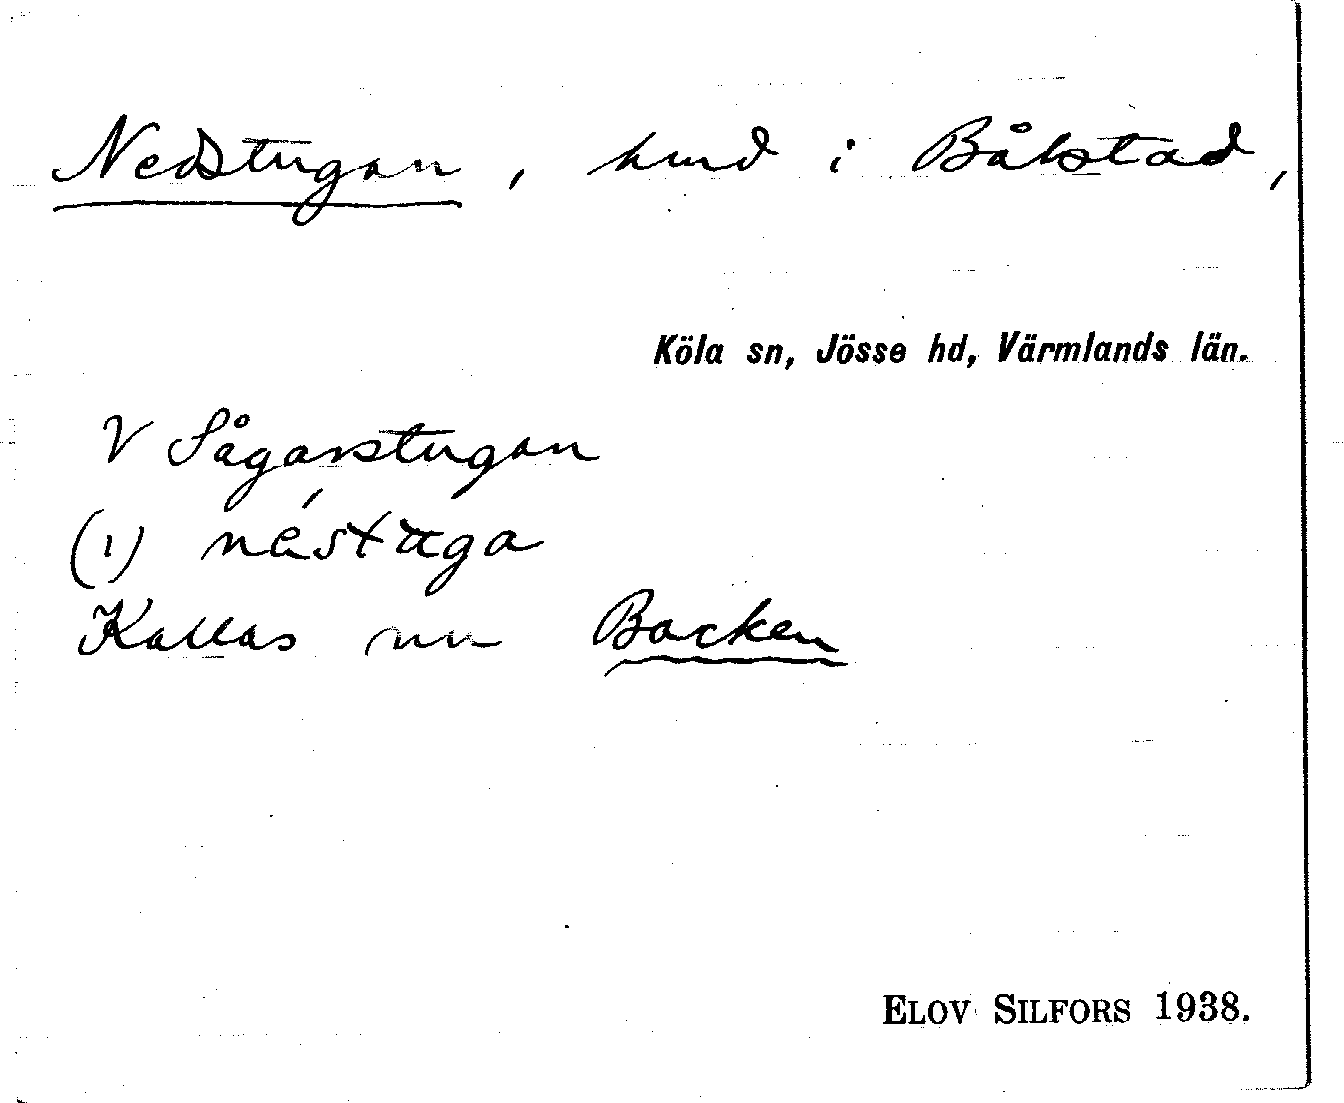 Nedstugan, hmd i Bålstad,
Köla sn, Jösse hd, Värmlands län.
V Sågarstugan
(1) nèstuga
Kallas nu Backen
ELOV SILFORS 1938.